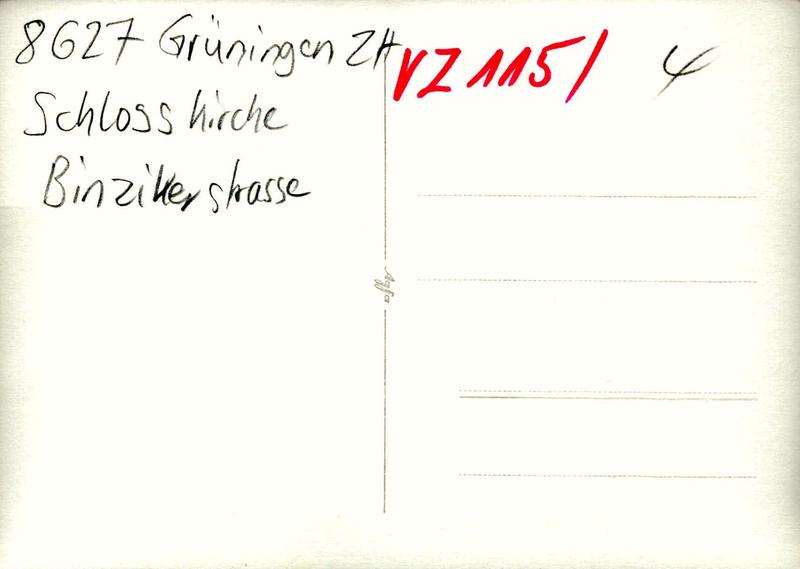 8627 Grüningen ZH
Schlosskirche
Binzikerstrasse
VZ 115/ 4
Agfa